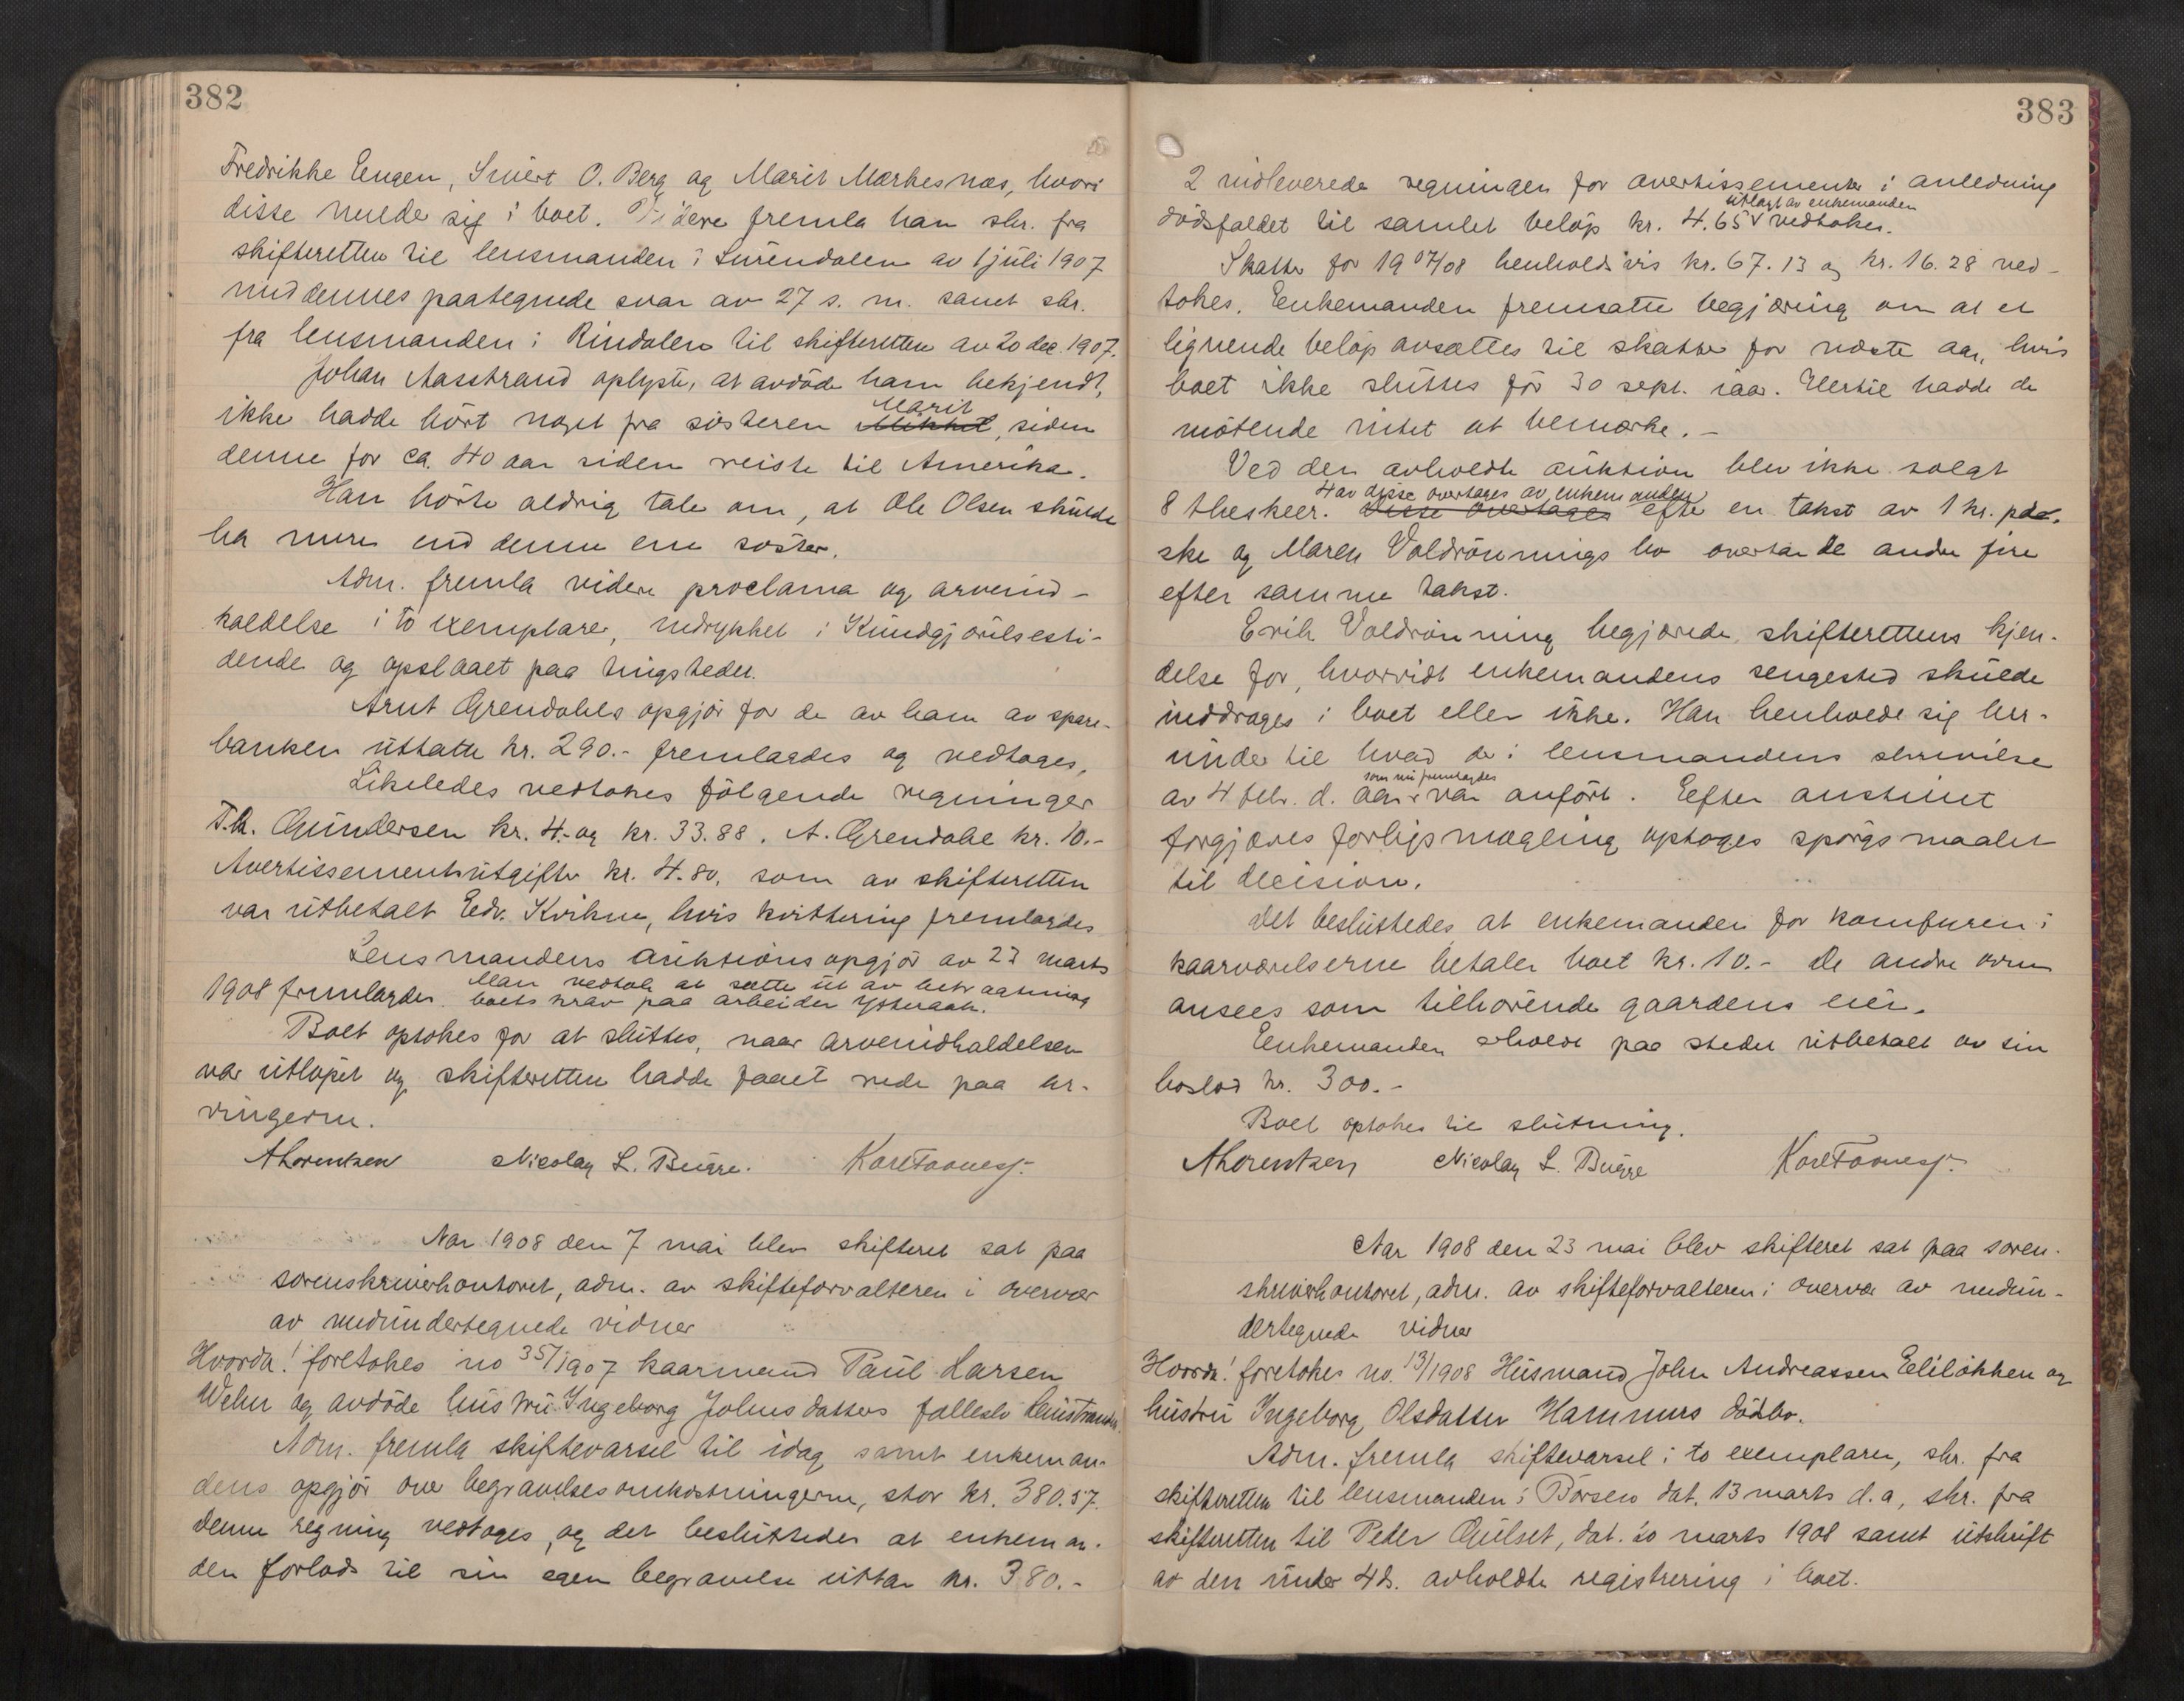 382
Fredrikke Engen, Sivert O. Berg og Marit Mærkesnæs, hvori
disse melder sig i boet. Videre fremla han skr. fra
skifteretten til lensmanden i Surendalen av 1 juli 1907
med dennes paategnede svar av 27 s. m. samt skr.
fra lensmanden i Rindalen til skifteretten av 20 dec. 1907.
Johan Aasstrand oplyste, at avdöde ham bekjendt,
ikke hadde hört noget fra sösteren Mikkel Marit, siden
denne for ca. 40 aar siden reiste til Amerika.
Han hörte aldrig tale om, at Ole Olsen skulde
ha mere end denne ene söster.
Adm. fremla videre proclama og arveind-
kaldelse i to exemplarer, indrykket i Kundgjörelsesti-
dende og opslaaet paa tingstedet.
Arnt Grendahls opgjör for de av ham av spare-
banken uttatte kr. 290.- fremlagdes og vedtoges,
Likeledes vedtokes fölgende regninger
T.h. Gundersen kr. 4.- og kr. 33.88. A. Grendahl kr. 10.-
Avertissementsutgifter kr. 4.80, som av skifteretten
var utbetalt Edv. Kvikne, hvis kvittering fremlagdes
Lensmandens auktionsopgjör av 23 marts
1908 fremlagdes. Man vedtok at sætte ut av betragtning
boets krav paa arbeider Ysteraas.
Boet optokes for at sluttes, naar arveindkaldelsen
var utlöpet og skifteretten hadde faaet rede paa ar-
vingerne.
A Lorentzen Nicolay L. Bugge.
Aar 1908 den 7 mai blev skifteret sat paa
sorenskriverkontoret, adm. av skifteforvalteren i overvær
av medundertegnede vidner
Hvorda! foretokes no 35/1907 kaarmand Paul Larsen
Wehn og avdöde hustru Ingeborg Johnsdatters fællesbo
Adm. fremla skiftevarsel til idag samt enkeman-
dens opgjör over begravelsesomkostningerne, stor kr. 380.57.
Denne regning vedtoges, og det besluttedes at enkeman-
den forlods til sin egen begravelse uttar kr. 380.-
383
2 indleverede regninger for avertissementer i anledning
dödsfaldet til samlet belöp kr. 4.65 utlagt av enkemanden vedtokes.
Skatter for 1907/08 henholdsvis kr. 67.13 og kr. 16.28 ved-
tokes. Enkemanden fremsatte begjæring om at et
lignende belöp avsættes til skatter for næste aar, hvis
boet ikke sluttes för 30 sept. iaar. Hertil hadde de
mötende intet at bemerke.-
Ved den avholdte auktion blev ikke solgt
8 theskeer. Disse overtages 4 av disse overtages av enkemanden efter en takst av 1 kr. pr.
ske og Maren Voldrönnings bo overtar de andre fire
efter samme takst.
Erik Voldrönning begjærede skifterettens kjen-
delse for, hvorvidt enkemandens sengested skulde
inddrages i boet eller ikke. Han henholdt sig her-
under til hvad der i lensmandens skrivelse
av 4 febr. d. aar som nu fremlagdes var anfört. Efter anstillet
forgjæves forligsmægling optoges spörgsmaalet
til decision.
Det besluttedes at enkemanden for komfuren i
kaarværelserne betaler boet kr. 10.- De andre ovne
ansees som tilhörende gaardens eier.
Enkemanden erholdt paa stedet utbetalt av sin
boslod kr. 300.-
Boet optokes til slutning.
A Lorentzen Nicolay L. Bugge
Aar 1908 den 23 mai blev skifteret sat paa soren-
skriverkontoret, adm. av skifteforvalteren i overvær av medun-
dertegnede vidner
Hvorda! foretokes no. 13/1908 Husmand John Andreassen Elilökken og
hustru Ingeborg Olsdatter Hammers dödsbo.
Adm. fremla skiftevarsel i to exemplarer, skr. fra
skifteretten til lensmanden i Börsen dat. 13 marts d.a, skr. fra
skifteretten til Peder Gulset, dat. 20 marts 1908 samt utskrift
av den under 4 d. avholdte registrering i boet.